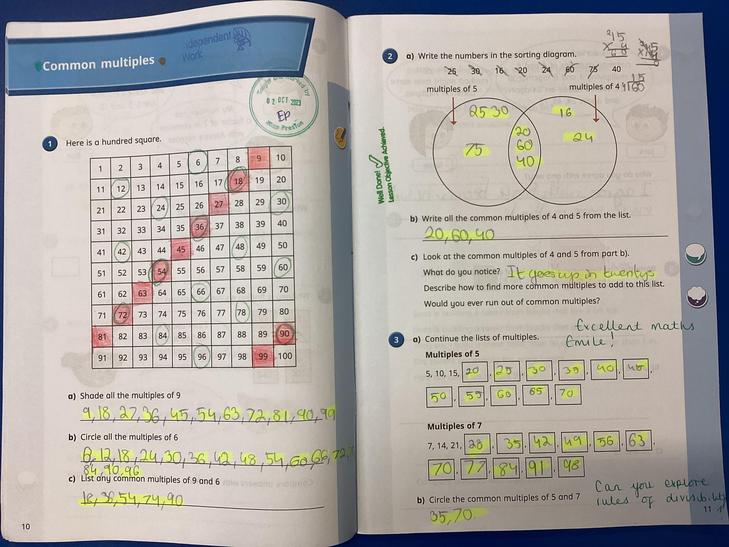 Common multiples
Independent
Work
02 OCT 2023
EP
Miss Preston
1 Here is a hundred square.
1 2 3 4 5 6 7 8 9 10
11 12 13 14 15 16 17 18 19 20
21 22 23 24 25 26 27 28 29 30
31 32 33 34 35 36 37 38 39 40
41 42 43 44 45 46 47 48 49 50
51 52 53 54 55 56 57 58 59 60
61 62 63 64 65 66 67 68 69 70
71 72 73 74 75 76 77 78 79 80
81 82 83 84 85 86 87 88 89 90
91 92 93 94 95 96 97 98 99 100
a) Shade all the multiples of 9
9,18,27,36,45,54,63,72,81,90,99
b) Circle all the multiples of 6
6,12,18,24,30,36,42,48,54,60,66,72,7
84,90,96
c) List any common multiples of 9 and 6
18,36,54,74,90
10
2 a) Write the numbers in the sorting diagram.
25 30 16 20 24 60 75 40
multiples of 5
multiples of 4
25 30
16
20
75
60
24
40
Well Done!
Lesson Objective Achieved.
b) Write all the common multiples of 4 and 5 from the list.
20,60,40
c) Look at the common multiples of 4 and 5 from part b).
What do you notice? It goes up in twentys
Describe how to find more common multiples to add to this list.
Would you ever run out of common multiples?
Excellent maths
Emile!
3 a) Continue the lists of multiples.
Multiples of 5
5, 10, 15, 20, 25, 30, 35, 40, 45,
50, 55, 60, 65, 70
Multiples of 7
7, 14, 21, 28, 35, 42, 49, 56, 63,
70, 77, 84, 91, 98
b) Circle the common multiples of 5 and 7
35,70
Can you explore
rules of divisibility
11